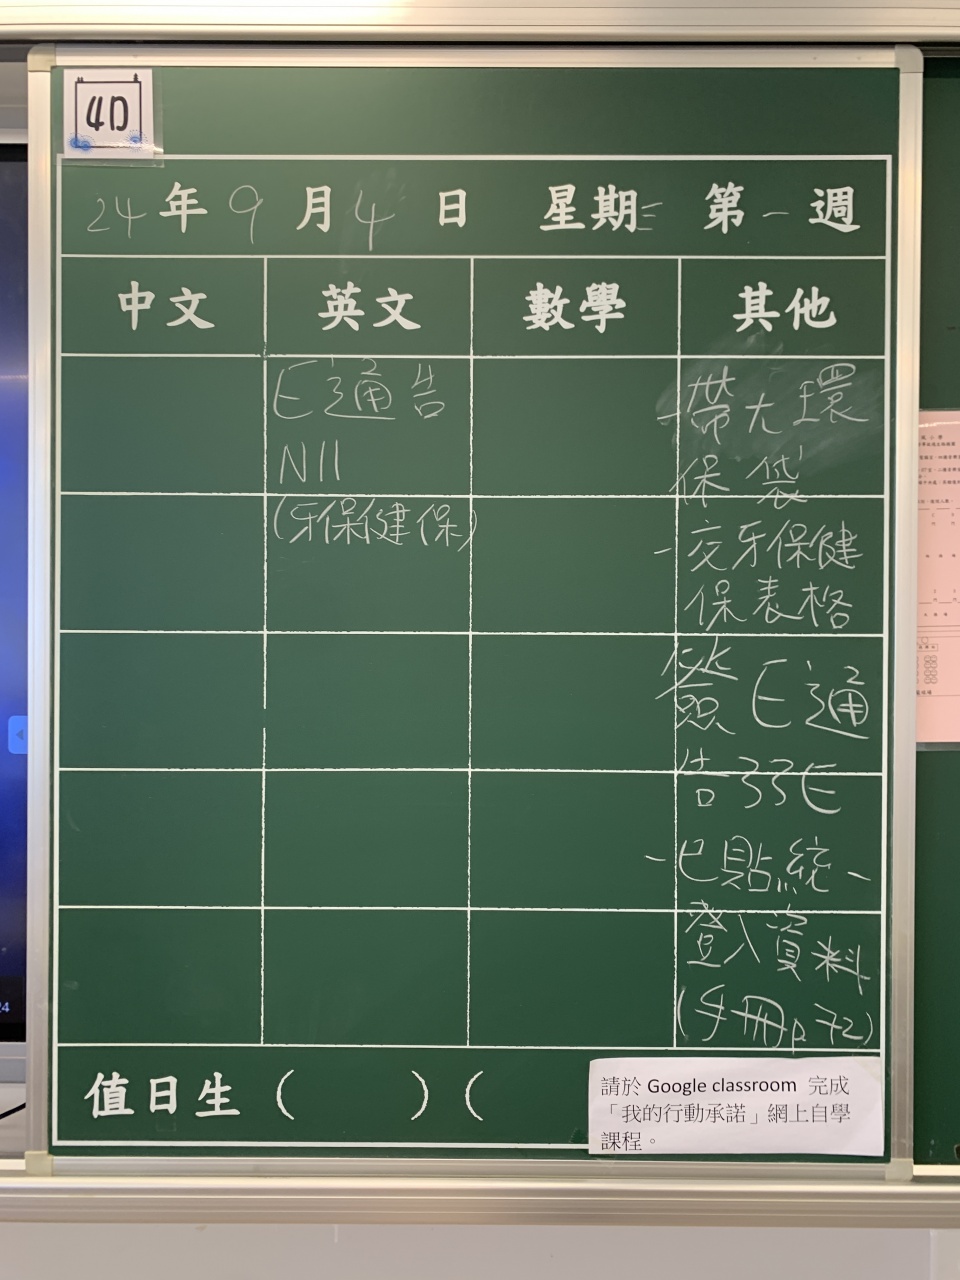 4D
24年9月4日 星期三 第一週
中文 英文 數學 其他
E通告
N11
(牙保健保)
-帶大環
保袋
-交牙保健
保表格
簽E通
告
-已貼統一
登入資料
(手冊p.72)
值日生( )(
請於 Google classroom 完成
「我的行動承諾」網上自學
課程。
24